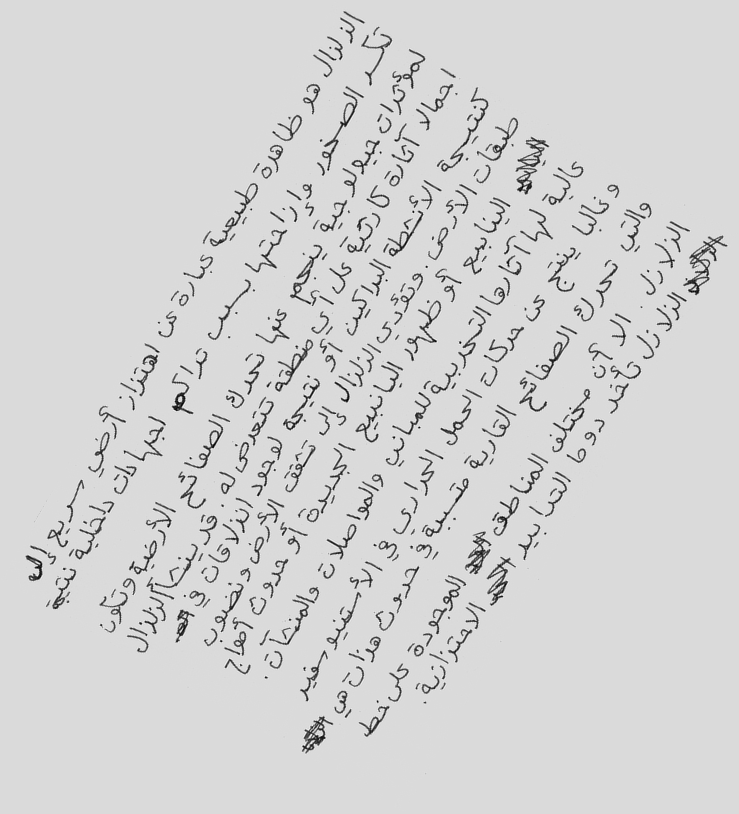 الزلزال هو ظاهرة طبيعية عبارة عن اهتزاز أرضي سريع إلى
تكسر الصخور وإزاحتها بسبب تراكم اجهادات داخلية نتيجة
لمؤثرات جيولوجية ينجم عنها تحرك الصفائح الأرضية وتكون
اجمالا آثارة كارثية على أي منطقة تتعرض له. قد ينشأ الزلزال
كنتيجة الأنشطة البراكين أو نتيجة لوجود انزلاقات في
طبقات الأرض. وتؤدي الزلزال إلى تشقق الأرض ونضوب
الينابيع أو ظهور اليانبيع الجديدة أو حدوث أمواج
عالية لها آثارها التخريبية للمباني والمواصلات والمنشآت.
وغالبا ينتج عن حركات الحمل الحراري في الأستنيوسفير
والتي تحرك الصفائح القارية متسببة في حدوث هزات هي
الزلازل. الا أن مختلف المناطق الموجودة على خط
الزلازل تأخذ دوما التدابير الاحترازية.